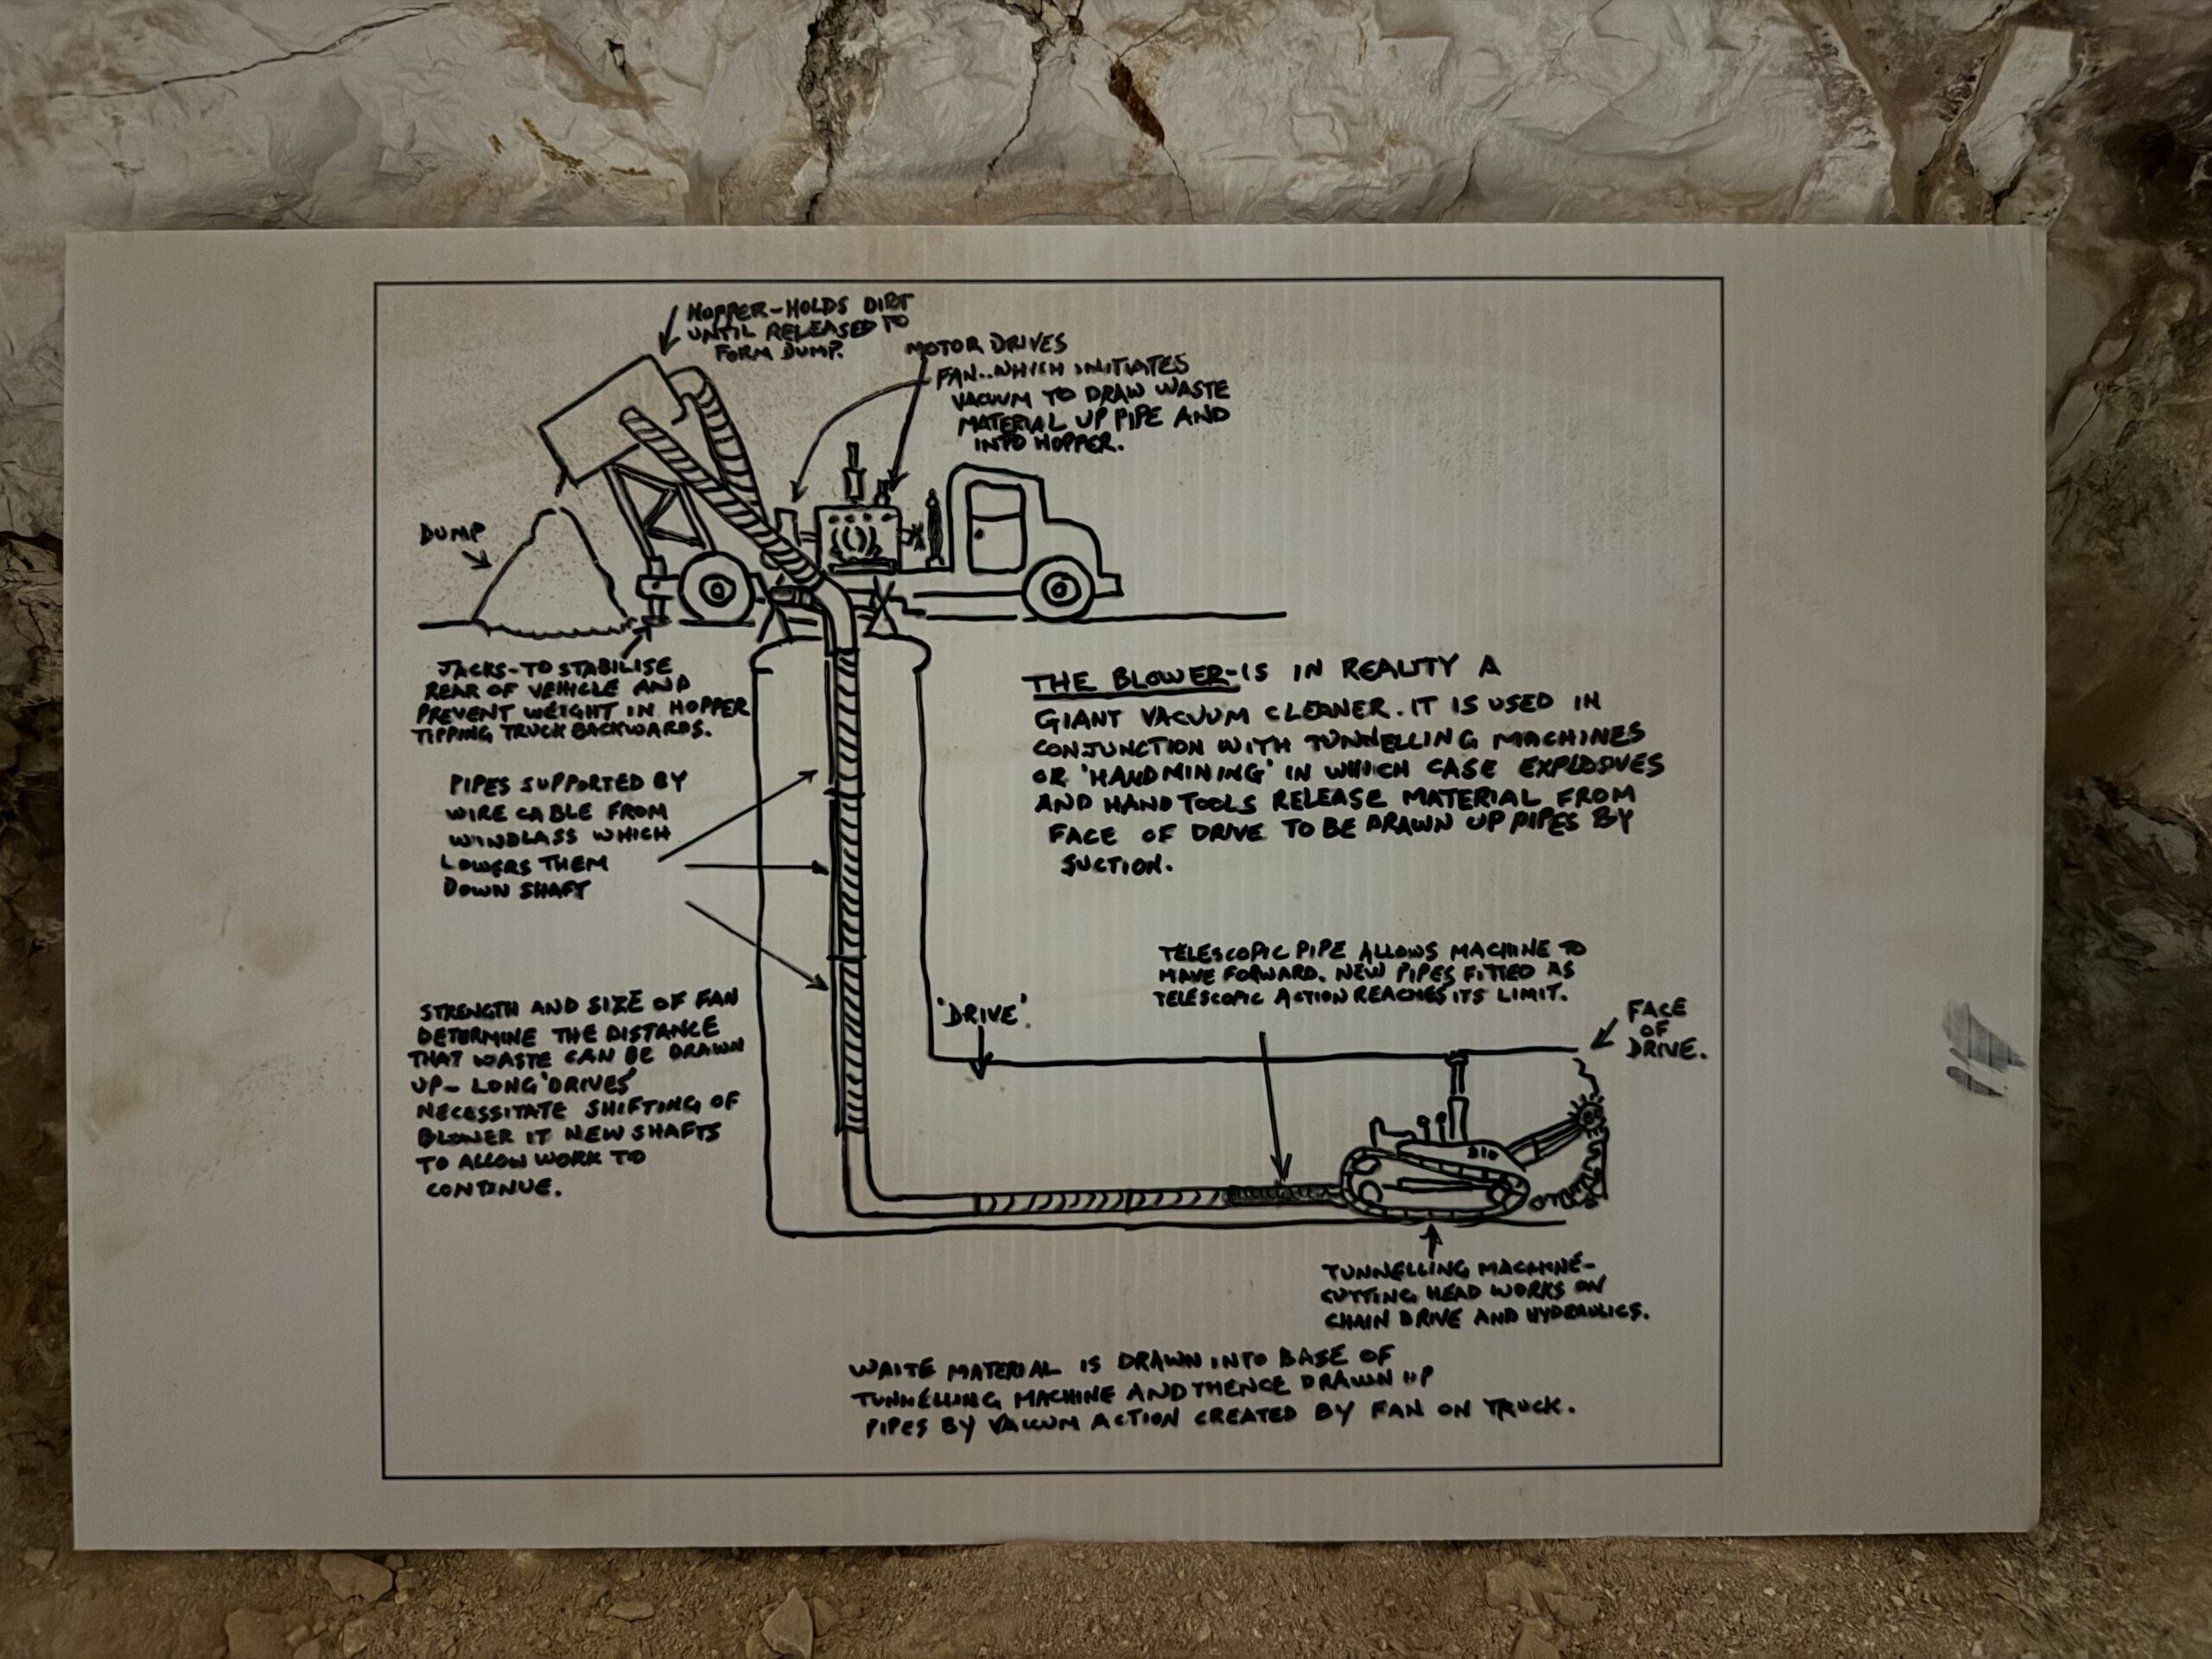 HOPPER-HOLDS DIRT
UNTIL RELEASED TO
FORM DUMP.
MOTOR DRIVES
FAN..WHICH INITIATES
VACUUM TO DRAW WASTE
MATERIAL UP PIPE AND
INTO HOPPER.
DUMP
JACKS-TO STABILISE
REAR OF VEHICLE AND
PREVENT WEIGHT IN HOPPER
TIPPING TRUCK BACKWARDS.
THE BLOWER-IS IN REALITY A
GIANT VACUUM CLEANER. IT IS USED IN
CONJUNCTION WITH TUNNELLING MACHINES
OR 'HANDMINING' IN WHICH CASE EXPLOSIVES
AND HAND TOOLS RELEASE MATERIAL FROM
FACE OF DRIVE TO BE DRAWN UP PIPES BY
SUCTION.
PIPES SUPPORTED BY
WIRE CABLE FROM
WINDLASS WHICH
LOWERS THEM
DOWN SHAFT
TELESCOPIC PIPE ALLOWS MACHINE TO
MOVE FORWARD. NEW PIPES FITTED AS
TELESCOPIC ACTION REACHES ITS LIMIT.
STRENGTH AND SIZE OF FAN
DETERMINE THE DISTANCE
THAT WASTE CAN BE DRAWN
UP- LONG 'DRIVES'
NECESSITATE SHIFTING OF
BLOWER IT NEW SHAFTS
TO ALLOW WORK TO
CONTINUE.
'DRIVE'.
FACE
OF
DRIVE.
TUNNELLING MACHINE-
CUTTING HEAD WORKS ON
CHAIN DRIVE AND HYDRAULICS.
WASTE MATERIAL IS DRAWN INTO BASE OF
TUNNELLING MACHINE AND THENCE DRAWN UP
PIPES BY VACUUM ACTION CREATED BY FAN ON TRUCK.